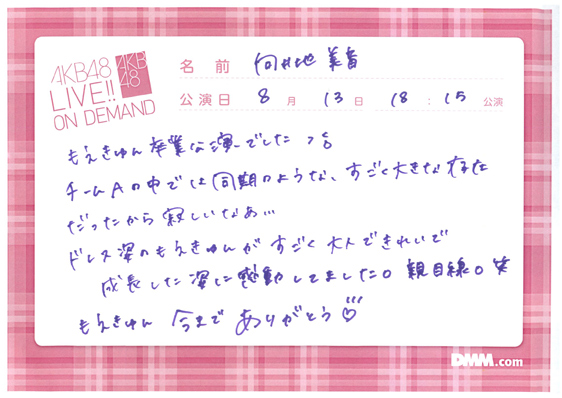 AKB48
LIVE!!
ON DEMAND
AKB
48
名前 向井地 美音
公演日 8月 13日 18:15 公演
もえきゅん卒業公演でした
チームAの中では同期のような、すごく大きな存在
だったから寂しいなあ...
ドレス姿のもえきゅんがすごく大人できれいで
成長した姿に感動してました。親目線。笑
もえきゅん 今まで ありがとう♡
DMM.com